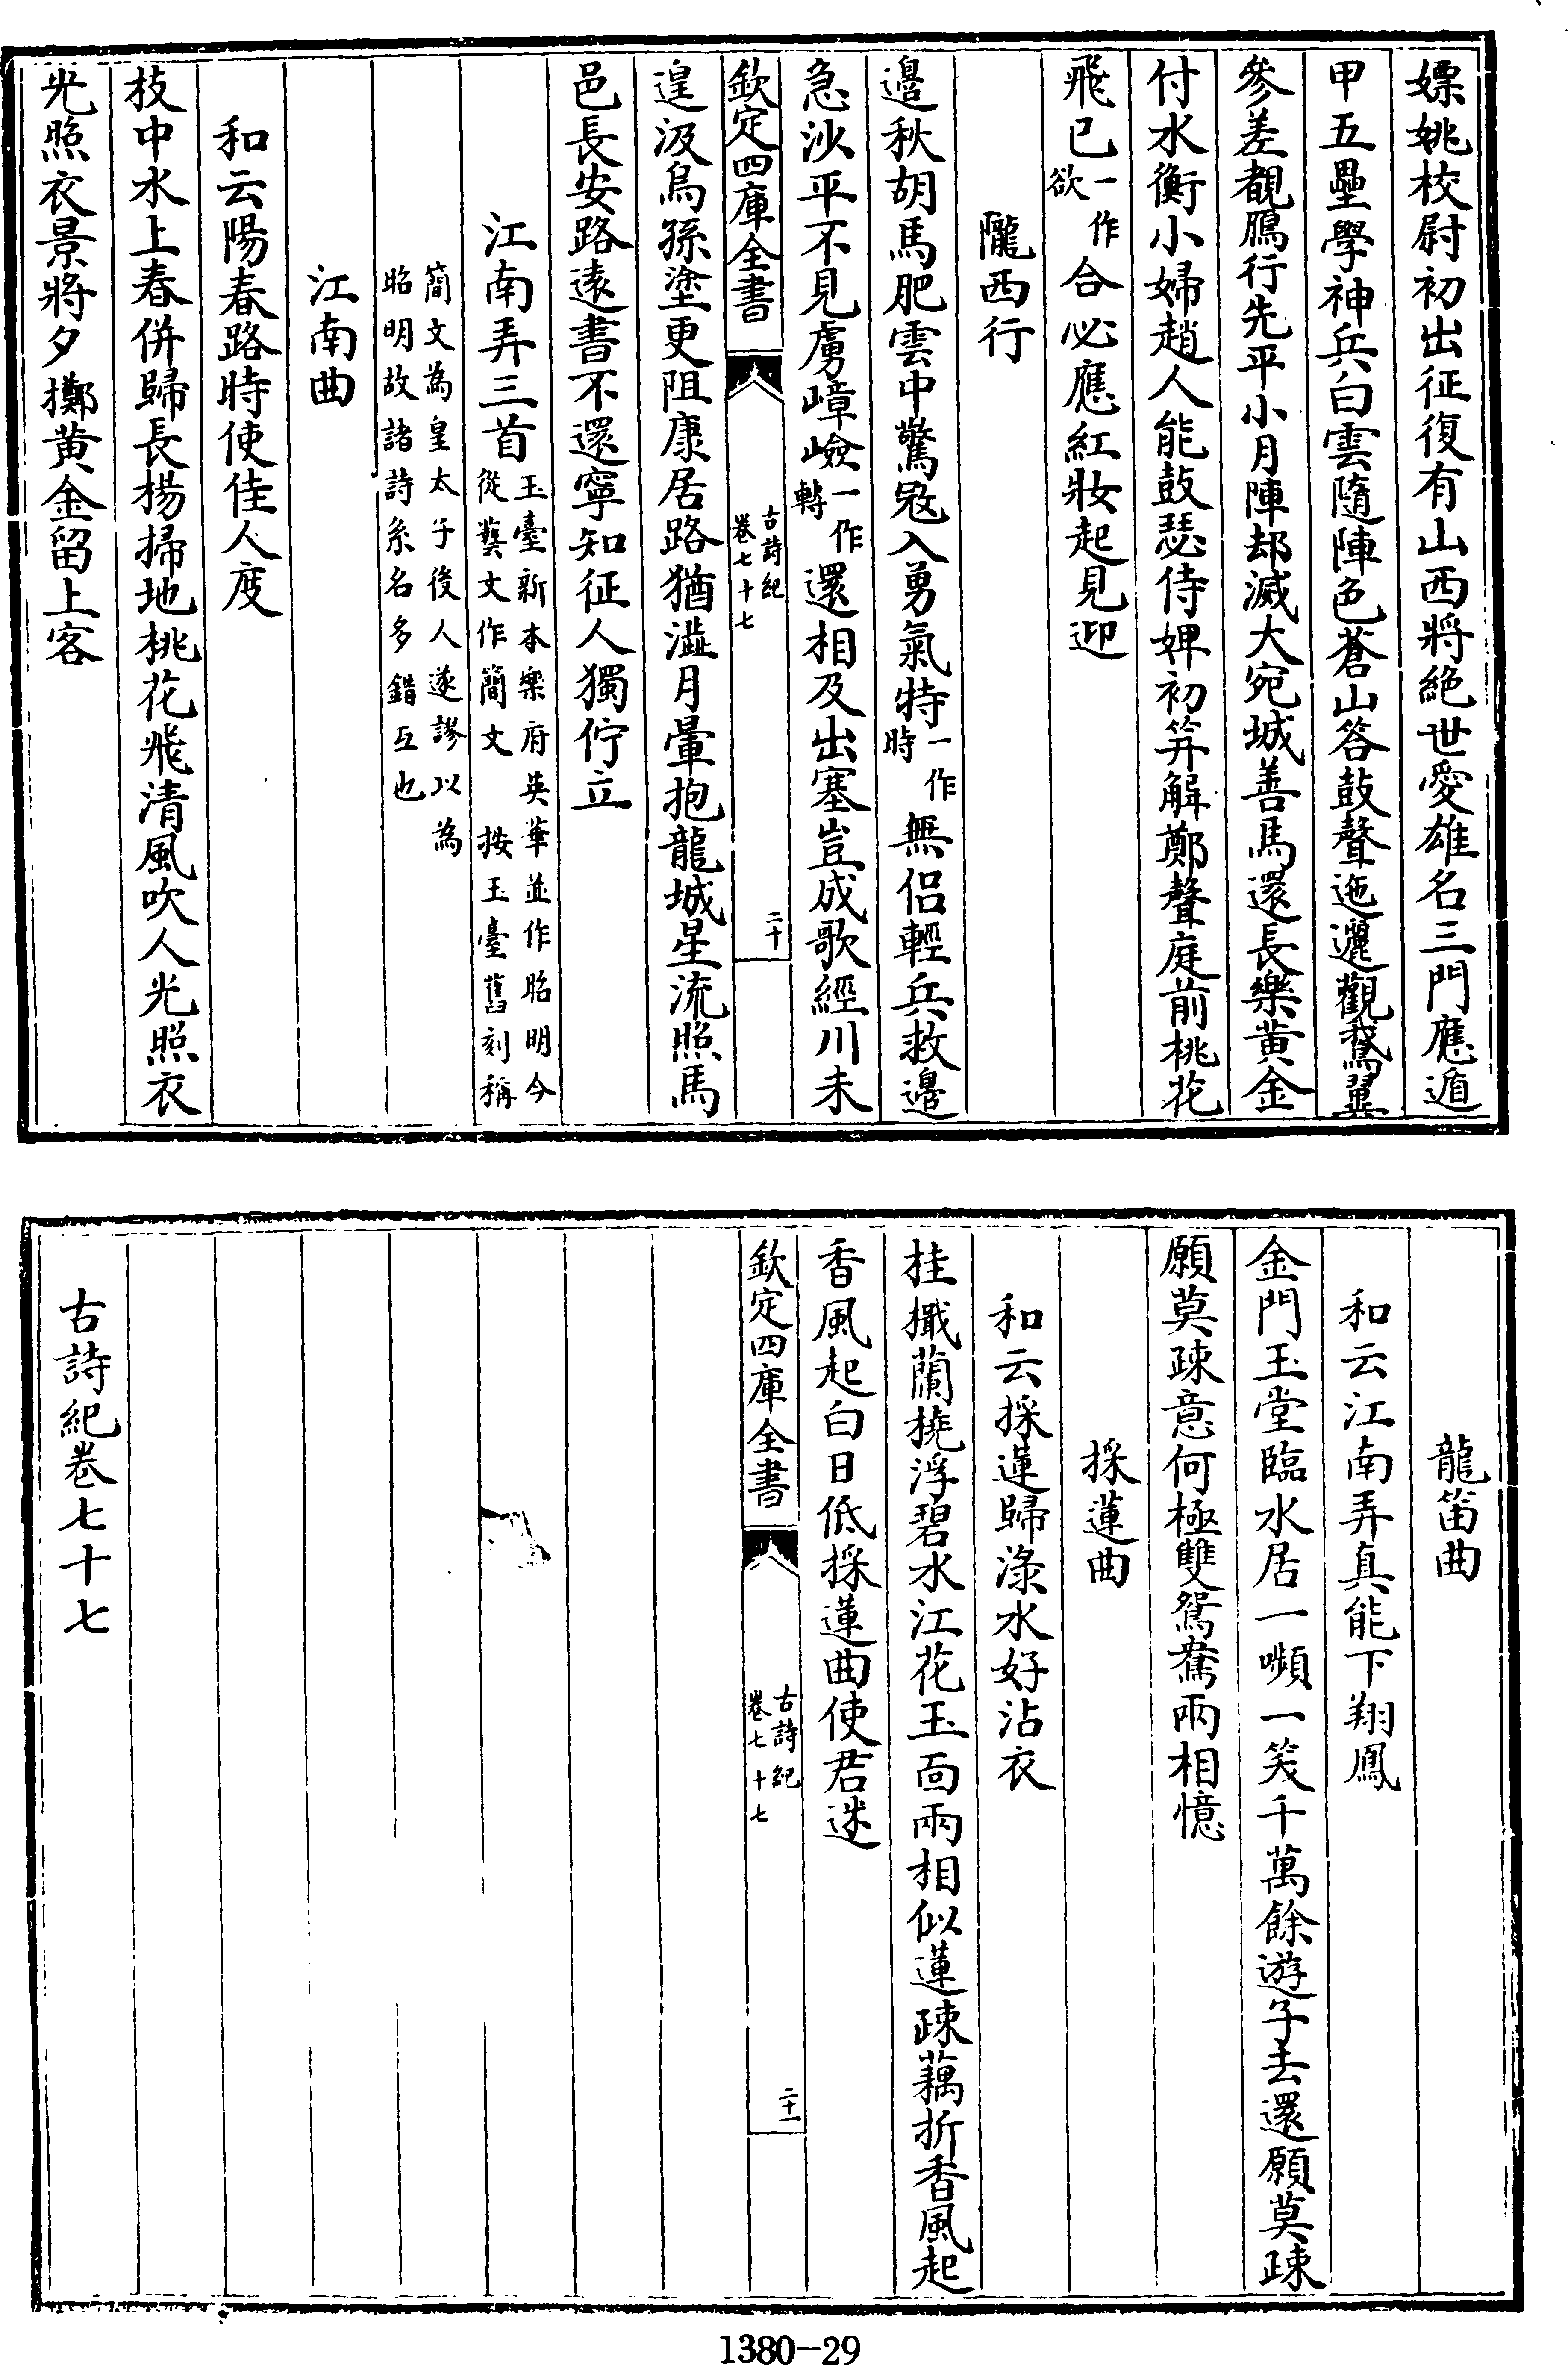 嫖姚校尉初出征復有山西將絶世愛雄名三門應遁
甲五壘學神兵白雲隨陣色蒼山答鼓聲迤邐觀鵞翼
參差覩鴈行先平小月陣却滅大宛城善馬還長樂黄金
付水衡小婦趙人能鼓瑟侍婢初筓解鄭聲庭前桃花
飛已一作欲合必應紅妝起見迎
隴西行
邉秋胡馬肥雲中驚㓂入勇氣特一作時無侣輕兵救邉
急沙平不見虜嶂嶮一作轉還相及出塞豈成歌經川未
欽定四庫全書
古詩紀
卷七十七
二十
遑汲烏孫塗更阻康居路猶澁月暈抱龍城星流照馬
邑長安路逺書不還寧知征人獨佇立
江南弄三首玉臺新本樂府英華並作昭明今從藝文作簡文 按玉臺舊刻稱
簡文為皇太子後人遂謬以為昭明故諸詩系名多錯互也
江南曲
和云陽春路時使佳人度
枝中水上春併歸長楊掃地桃花飛清風吹人光照衣
光照衣景將夕擲黄金留上客
龍笛曲
和云江南弄真能下翔鳳
金門玉堂臨水居一嚬一笑千萬餘遊子去還願莫疎
願莫疎意何極雙鴛鴦兩相憶
採蓮曲
和云採蓮歸渌水好沾衣
桂檝蘭橈浮碧水江花玉面兩相似蓮疎藕折香風起
香風起白日低採蓮曲使君迷
欽定四庫全書
古詩紀
卷七十七
二十一
古詩紀卷七十七
1380-29